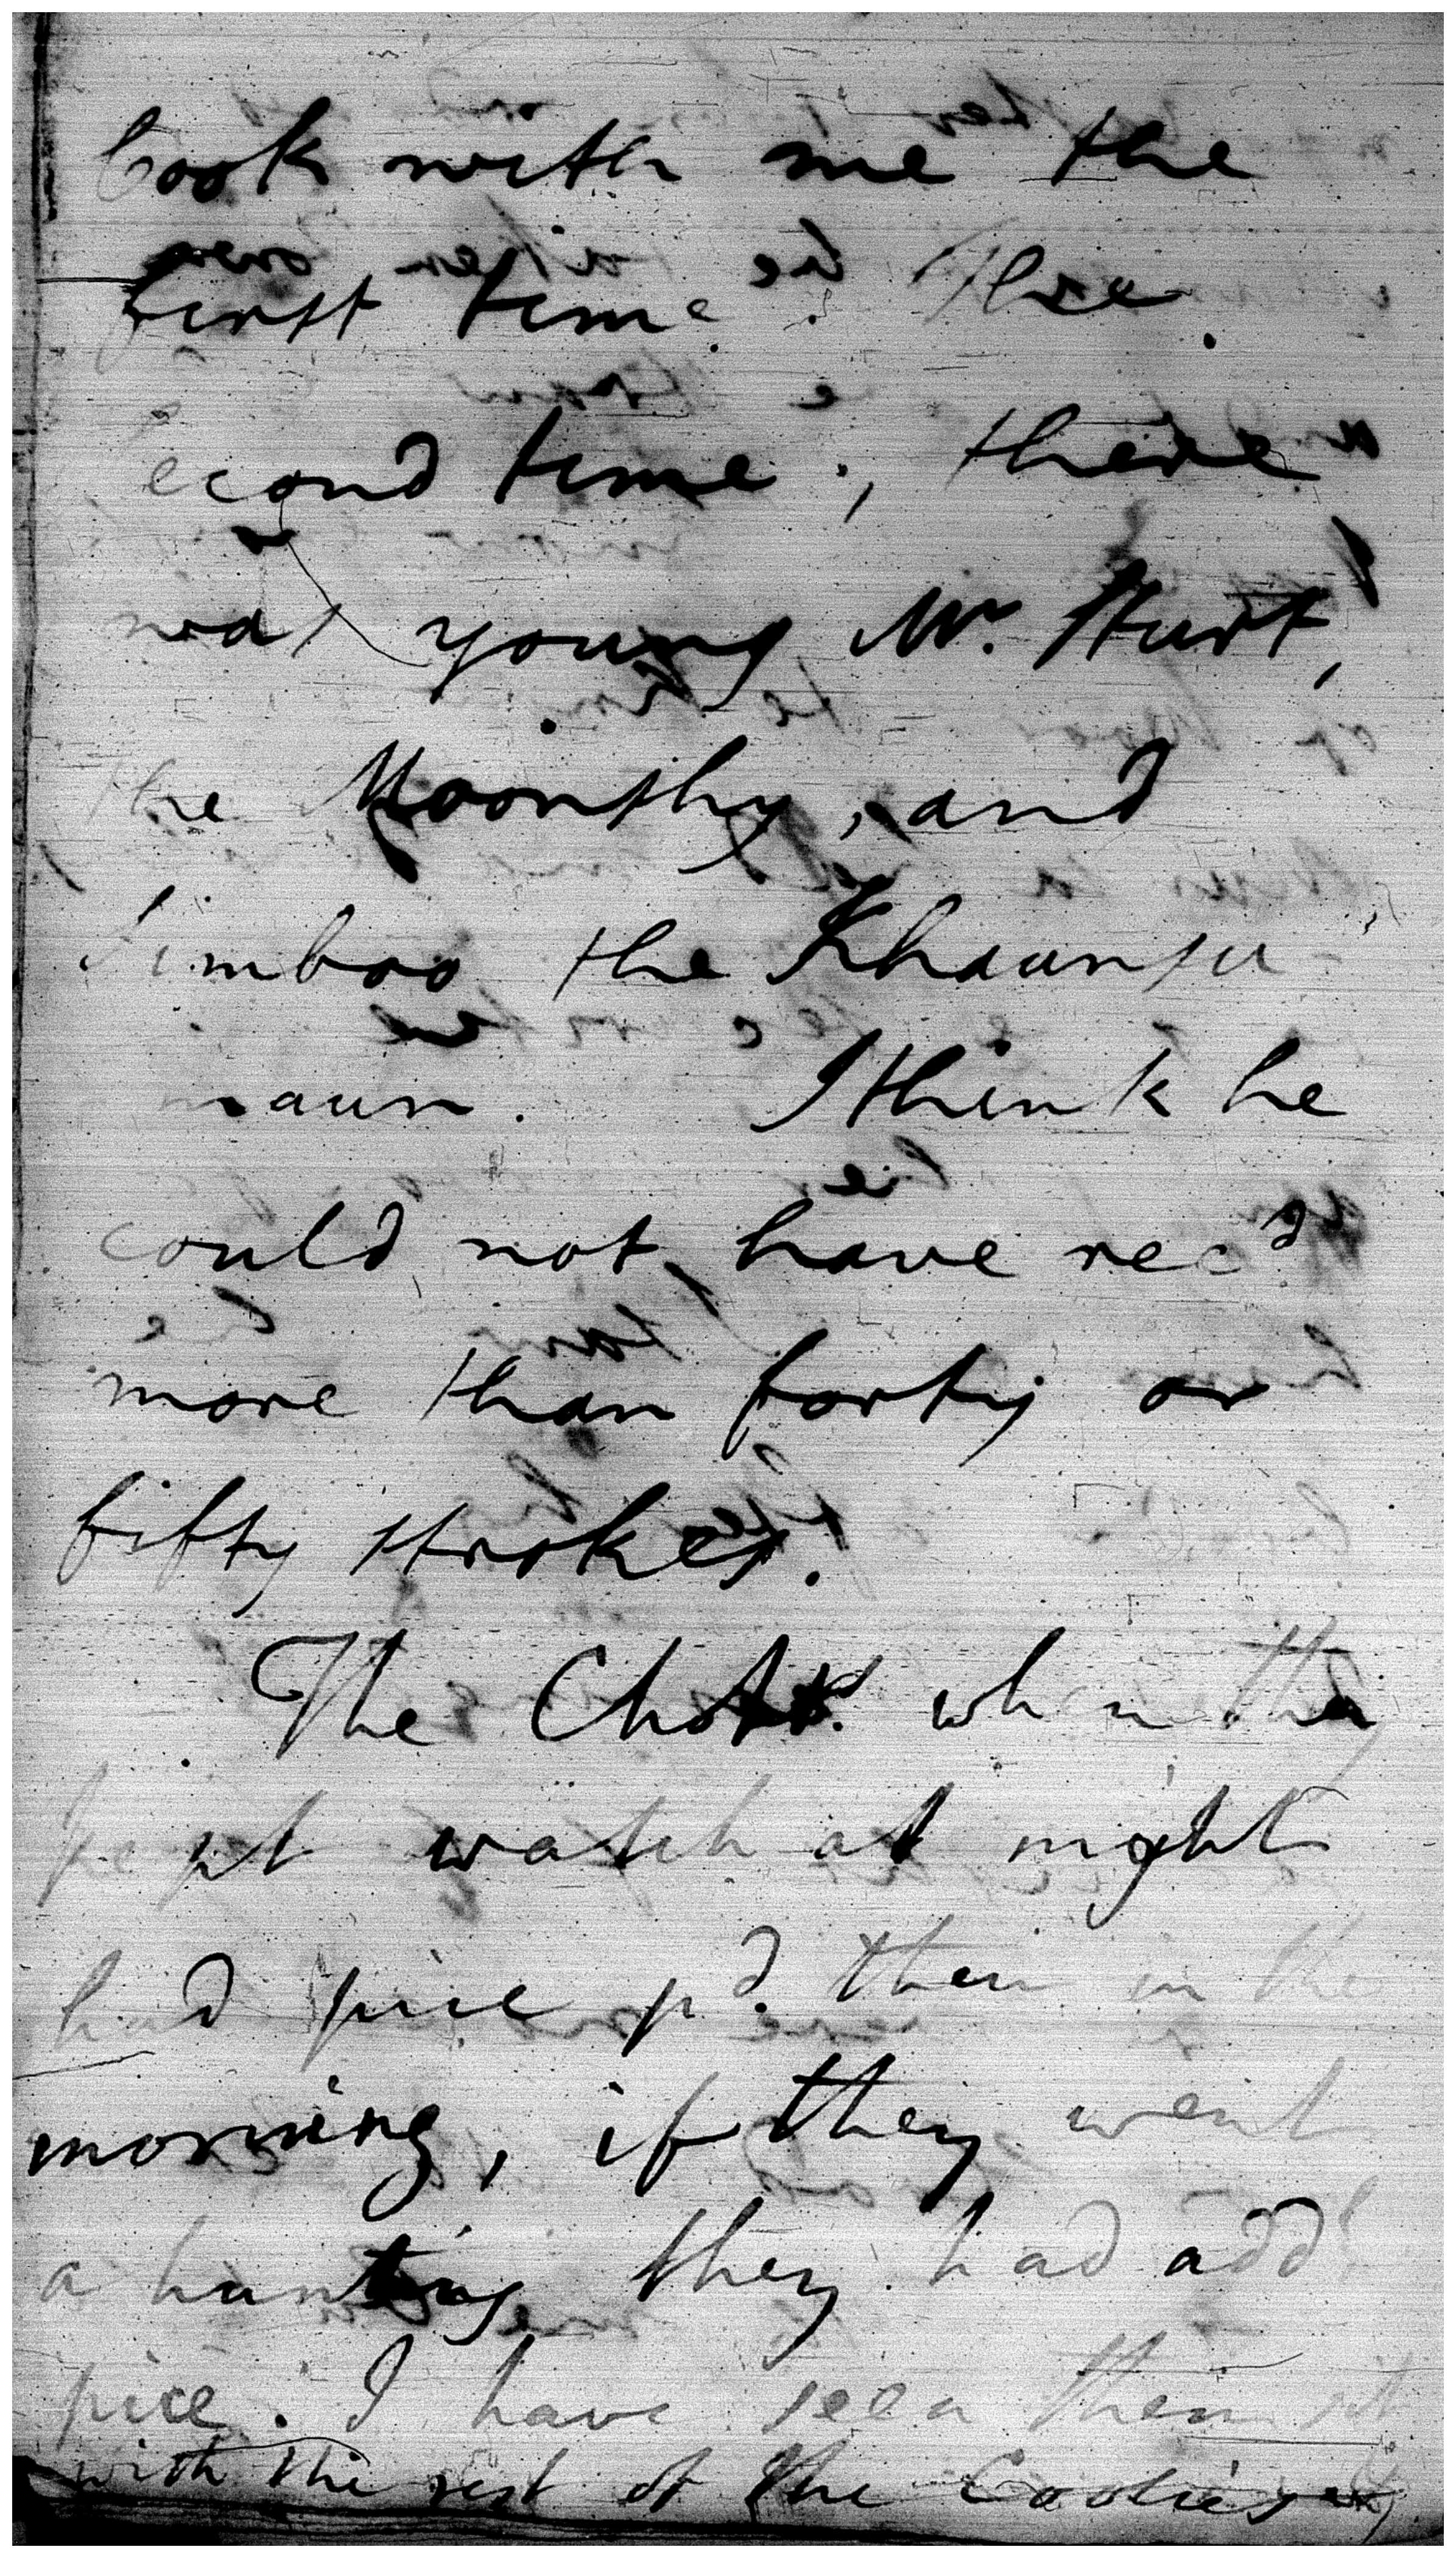 Cook with me the
first time. The
second time, there
was young Mr. Hurt,
the Moonshy, and
Jimboo the Khaunsu-
maun. I think he
could not have rec^d
more than forty or
fifty strokes.
The Chok^s. when they
kept watch at night
had pice p^d. them in the
morning, if they went
a hunting they had add^l
pice. I have seen them sit
with the rest of the Coolies